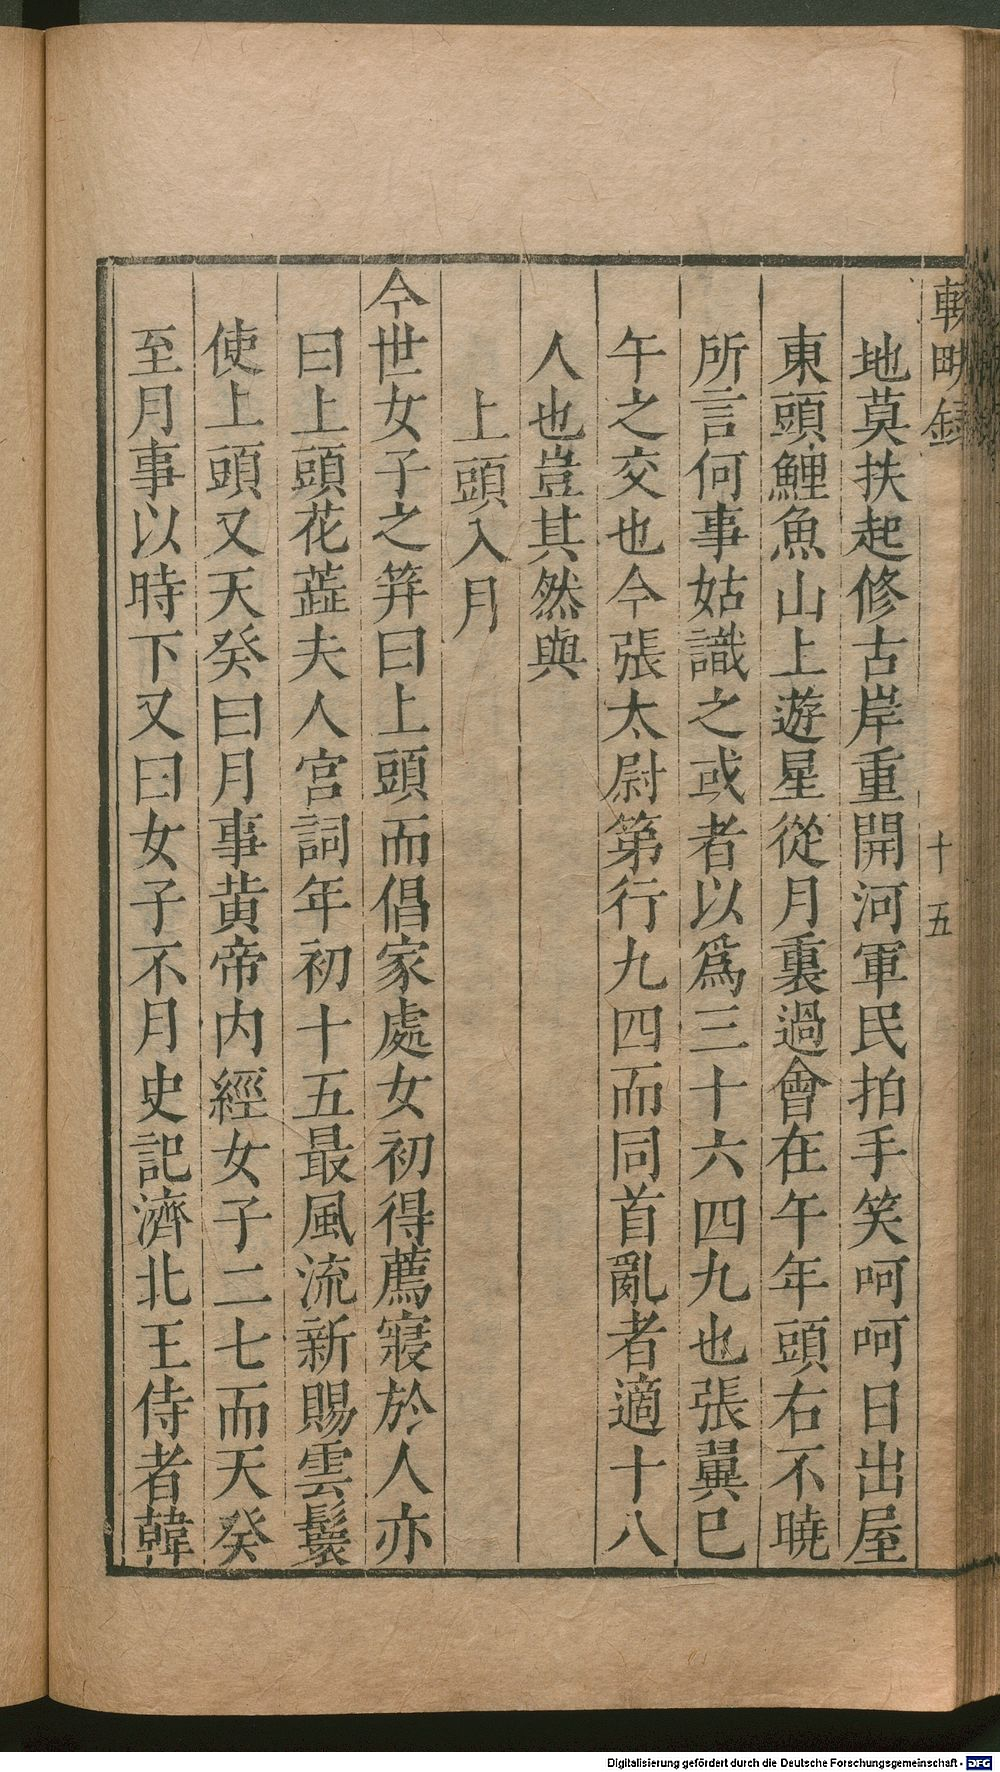 輟畊録
十五
地莫扶起修古岸重開河軍民拍手笑呵呵日出屋
東頭鯉魚山上遊星從月裏過會在午年頭右不曉
所言何事姑識之或者以爲三十六四九也張翼巳
午之交也今張太尉第行九四而同首亂者適十八
人也豈其然與
上頭入月
今世女子之笄曰上頭而倡家處女初得薦寢於人亦
曰上頭花蕋夫人宮詞年初十五最風流新賜雲鬟
使上頭又天癸曰月事黄帝内經女子二七而天癸
至月事以時下又曰女子不月史記濟北王侍者韓
Digitalisierung gefördert durch die Deutsche Forschungsgemeinschaft - DFG